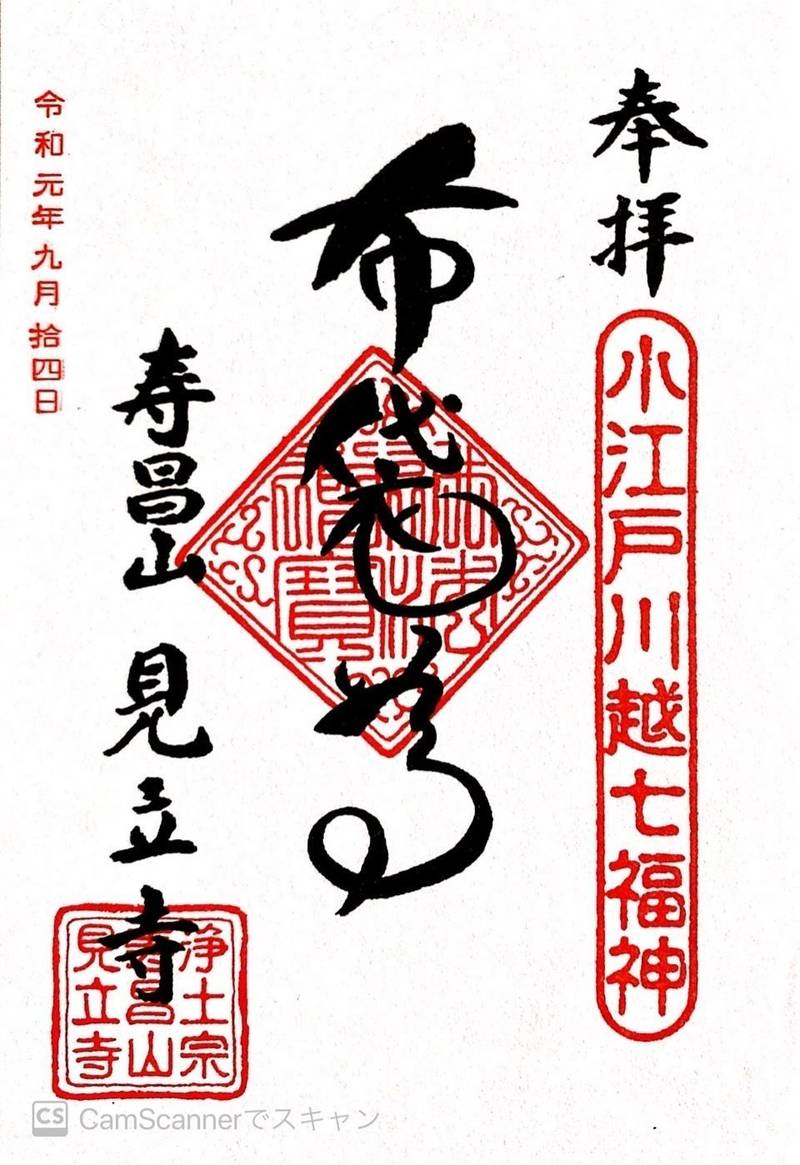 奉拝
小江戸川越七福神
布袋尊
佛法僧寳
寿昌山 見立寺
浄土宗
寿昌山
見立寺
令和元年九月拾四日
CS CamScannerでスキャン